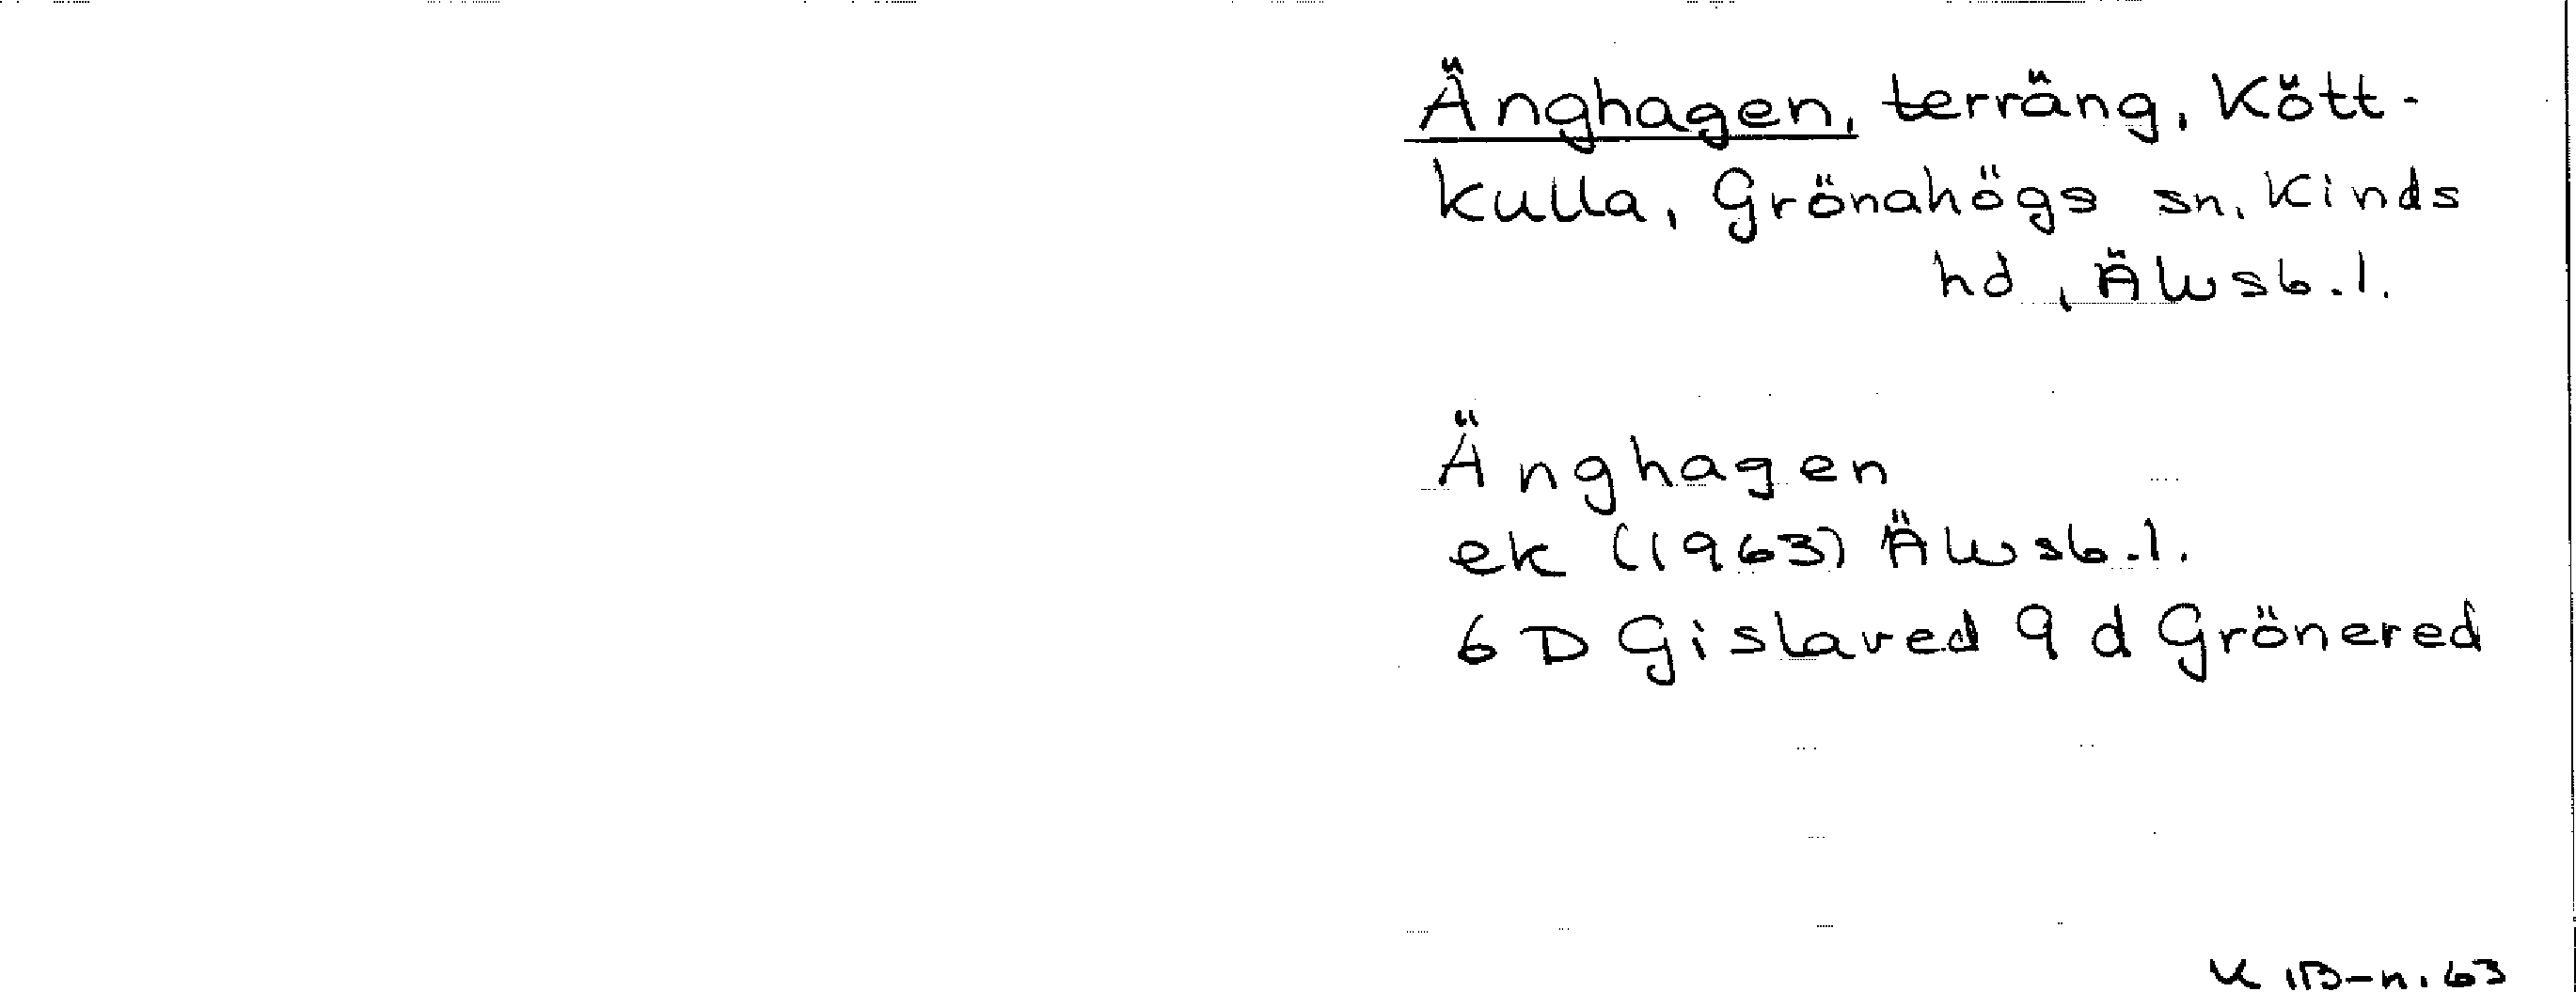 Änghagen, terräng, Kött-
kulla, Grönahögs sn, Kinds
hd, Älvsb.l.
Änghagen
ek (1963) Älvsb.l.
6 D Gislaved 9 d Grönered